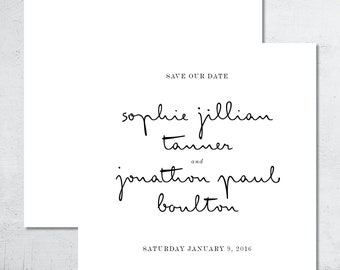 SAVE OUR DATE
sophie jillian
tanner
and
jonathon paul
boulton
SATURDAY JANUARY 9, 2016